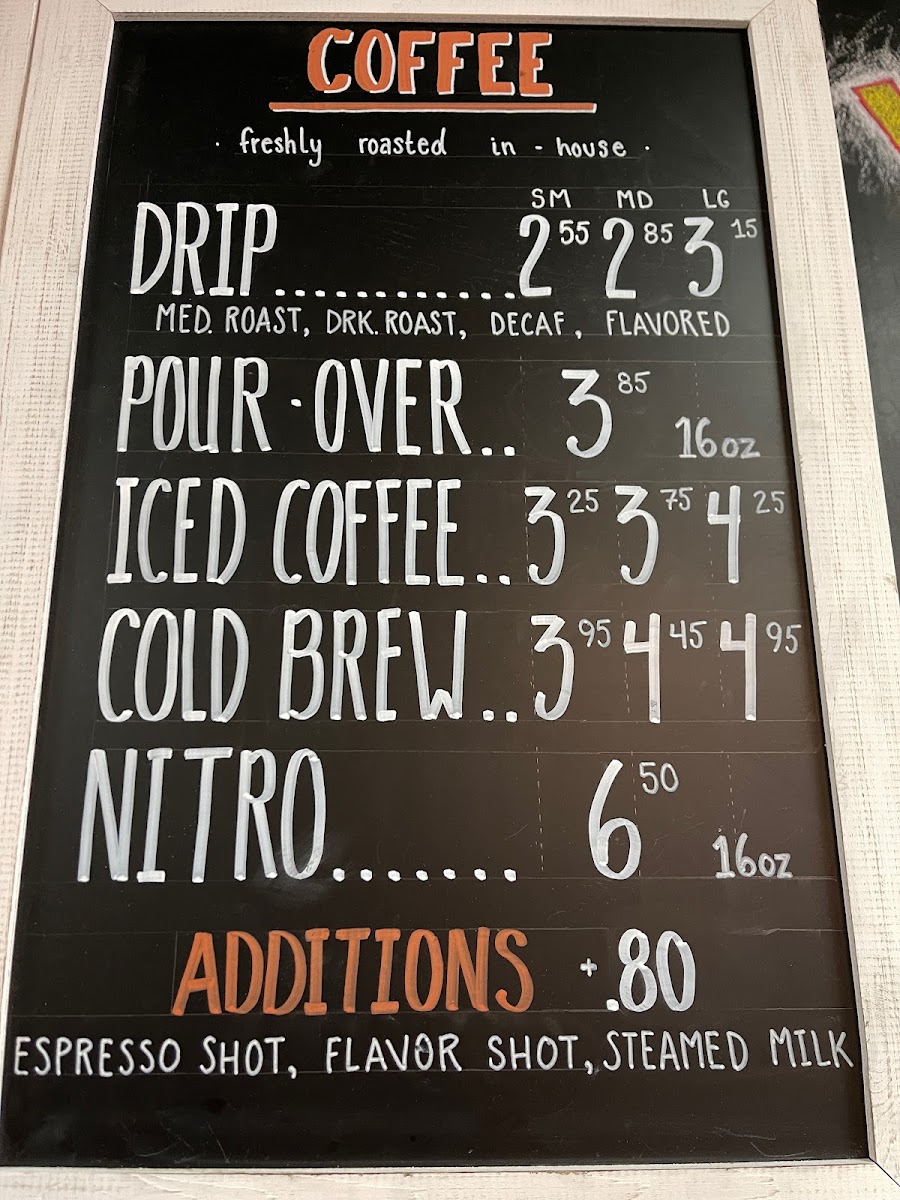 COFFEE
· freshly roasted in - house ·
SM MD LG
DRIP............ 2 55 2 85 3 15
MED. ROAST, DRK. ROAST, DECAF, FLAVORED
POUR · OVER.. 3 85 16oz
ICED COFFEE.. 3 25 3 75 4 25
COLD BREW.. 3 95 4 45 4 95
NITRO....... 6 50 16oz
ADDITIONS + .80
ESPRESSO SHOT, FLAVOR SHOT, STEAMED MILK